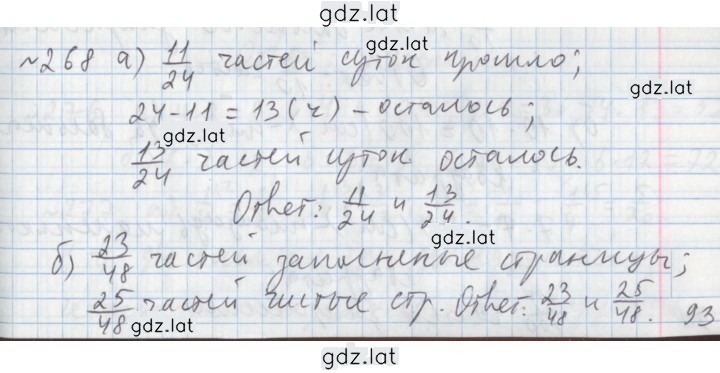 gdz.lat
№268 а) 11/24 частей суток прошло;
gdz.lat
24-11=13(ч) - осталось;
gdz.lat
13/24 частей суток осталось.
Ответ: 11/24 и 13/24.
gdz.lat
б) 23/48 частей заполненые страницы;
25/48 частей чистые стр. Ответ: 23/48 и 25/48. 93
gdz.lat
gdz.lat